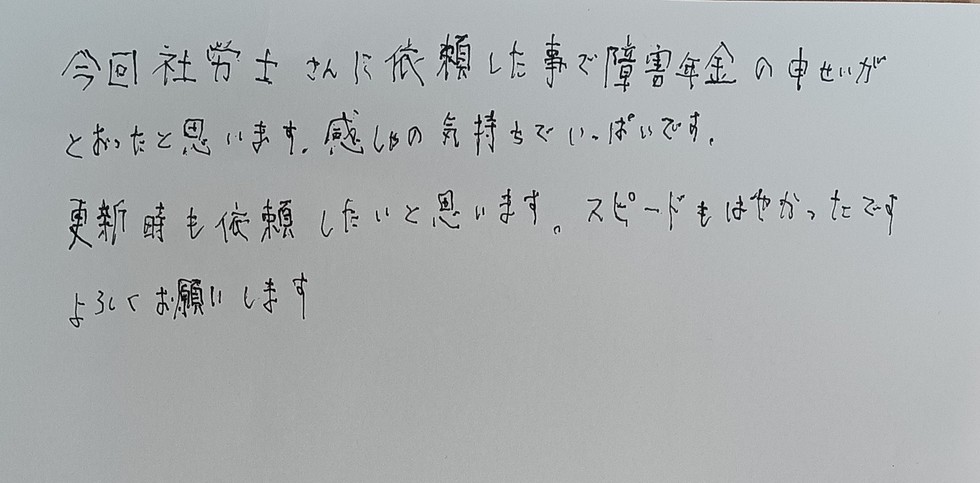 今回社労士さんに依頼した事で障害年金の申せいが
とおったと思います。感しゃの気持ちでいっぱいです。
更新時も依頼したいと思います。スピードもはやかったです
よろしくお願いします